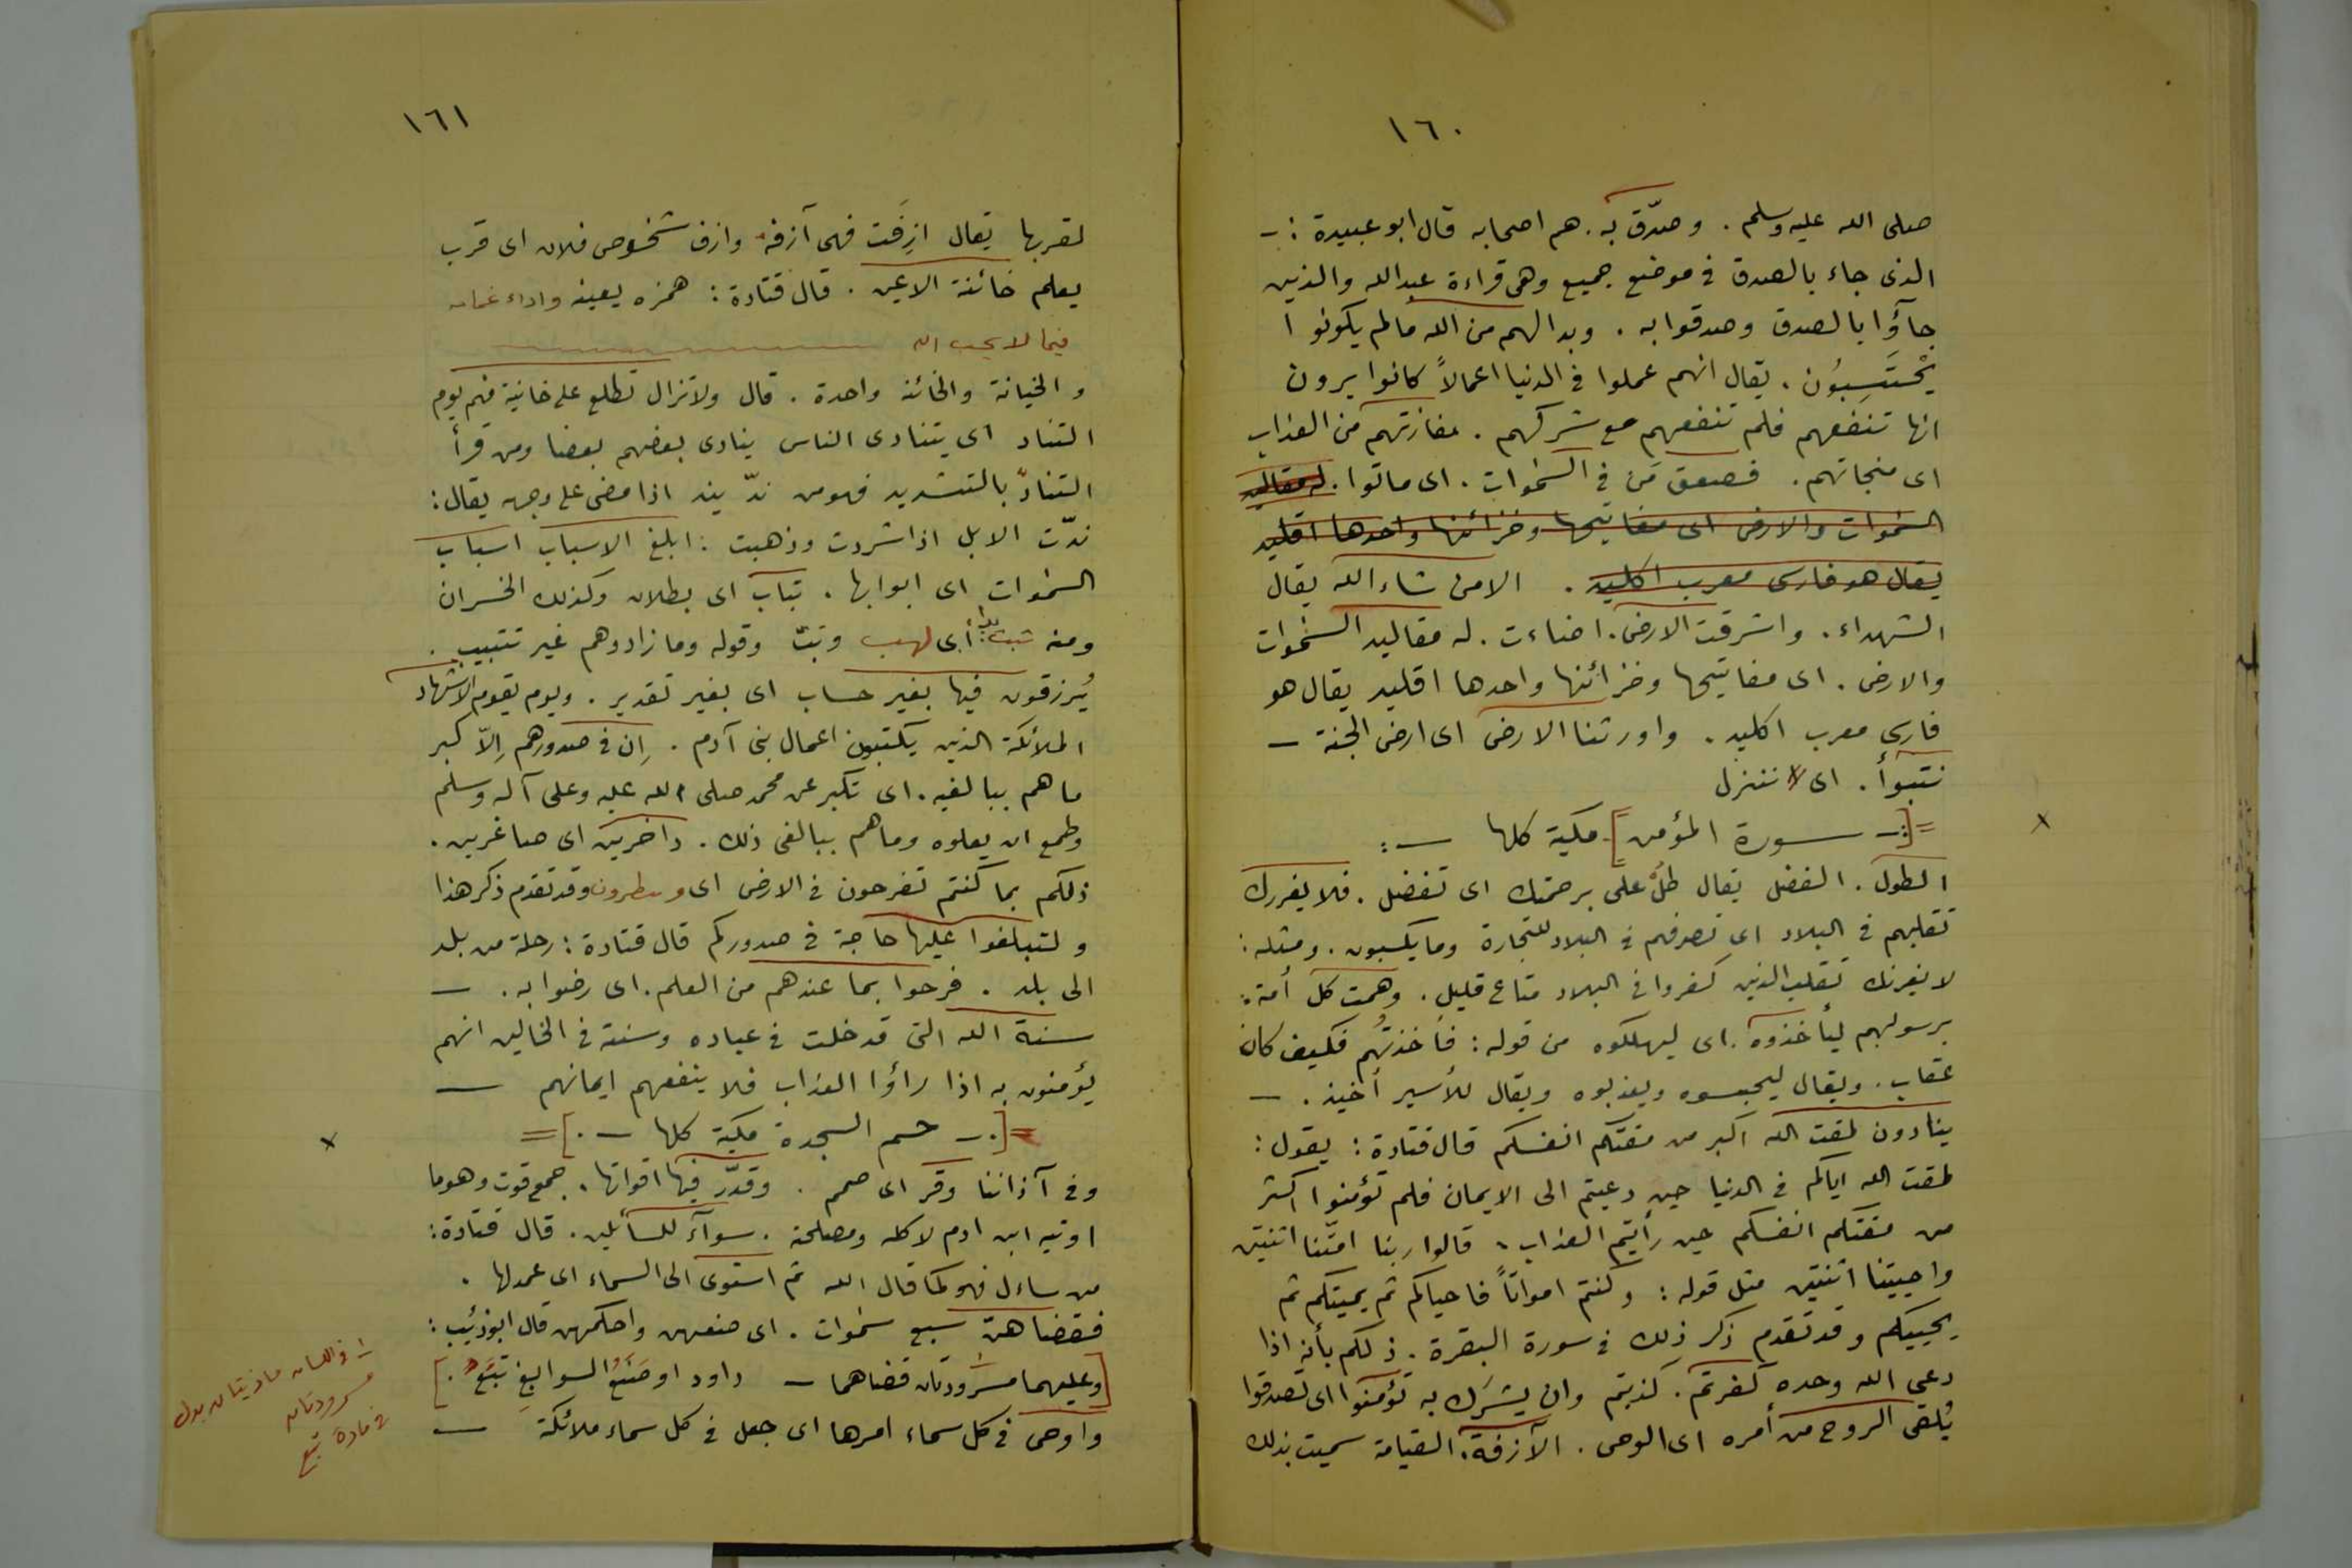 ١٦٠
صلى الله عليه وسلم . وصدّق به . هم اصحابه قال ابو عبيدة : -
الذى جاء بالصدق فى موضع جميع وهى قراءة عبدالله والذين
جآؤا بالصدق وصدقوا به . وبدا لهم من الله مالم يكونوا
يَحْتَسِبُون . يقال انهم عملوا فى الدنيا اعمالاً كانوا يرون
انها تنفعهم فلم تنفعهم مع شركهم . بمفازتهم من العذاب
اى منجاتهم . فصعق مَن فى السمٰوات . اى ماتوا . له مقاليد
السمٰوات والارض اى مفاتيحها وخزائنها واحدها اقليد
يقال هو فارسى معرب اكليد . الا من شاء الله يقال
الشهداء . واشرقت الارض . اضاءت . له مقاليد السمٰوات
والارض . اى مفاتيحها وخزائنها واحدها اقليد يقال هو
فارسى معرب اكليد . واورثنا الارض اى ارض الجنة –
نتبوأ . اى ننزل
=[:- سورة المؤمن] مكية كلها –:
الطول . الفضل يقال طُلْ على برحمتك اى تفضل . فلا يغررك
تقلبهم فى البلاد اى تصرفهم فى البلاد للتجارة وما يكسبون . ومثله :
لا يغرنك تقلب الذين كفروا فى البلاد متاع قليل . وهمت كل أمة :
برسولهم ليأخذوه . اى ليهلكوه من قوله : فأخذتُهم فكيف كان
عقاب . ويقال ليحبسوه ويعذبوه ويقال للأسير أخيذ . –
ينادون لمقت الله اكبر من مقتكم انفسكم قال قتادة : يقول :
لمقت الله اياكم فى الدنيا حين دعيتم الى الايمان فلم تؤمنوا اكثر
من مقتكم انفسكم حين رأيتم العذاب . قالوا ربنا امتّنا اثنتين
واحييتنا اثنتين مثل قوله : وكنتم امواتاً فاحياكم ثم يميتكم ثم
يحييكم وقد تقدم ذكر ذلك فى سورة البقرة . ذلكم بأنه اذا
دعى الله وحده كفرتم . كذبتم وان يشرَك به تؤمنوا اى تصدقوا
يُلقى الروح من أمره اى الوحى . الآزفة . القيامة سميت بذلك
١٦١
لقربها يقال ازِفَت فهى آزفة وازف شخوص فلان اى قرب
يعلم خائنة الاعين . قال قتادة : همزه بعينه واداء غمامه
فيما لا يحب الله
و الخيانة والخائنة واحدة . قال ولا تزال تطلع على خائنة منهم يوم
التناد اى يتنادى الناس ينادى بعضهم بعضا ومن قرأ
التنادّ بالتشديد فهو من ندّ يند اذا مضى على وجهه يقال :
ندّت الابل اذا شردت وذهبت : ابلغ الاسباب اسباب
السمٰوات اى ابوابها . تباب اى بطلان وكذلك الخسران
ومنه تبت يدا أبى لهب وتبّ وقوله وما زادوهم غير تتبيب .
يُرزقون فيها بغير حساب اى بغير تقدير . ويوم يقوم الاشهاد
الملائكة الذين يكتبون اعمال بنى آدم . اِن فى صدورهم اِلاّ كبر
ما هم ببالغيه . اى تكبر عن محمد صلى الله عليه وعلى آله وسلم
وطمع ان يعلوه وما هم ببالغى ذلك . داخرين اى صاغرين .
ذلكم بما كنتم تفرحون فى الارض اى وتبطرون وقد تقدم ذكر هذا
ولتبلغوا عليها حاجة فى صدوركم قال قتادة : رحلة من بلد
الى بلد . فرحوا بما عندهم من العلم . اى رضوا به . –
سنة الله التى قد خلت فى عباده وسنته فى الخالين انهم
يؤمنون به اذا رأوا العذاب فلا ينفعهم ايمانهم –
=[.- حم السجدة مكية كلها -.]=
وفى آذاننا وقر اى صمم . وقدّر فيها اقواتها . جمع قوت وهو ما
اوتيه ابن ادم لاكله ومصلحته . سوآء للسائلين . قال قتادة :
من ساءل فهو كما قال الله ثم استوى الى السماء اى عمد لها .
فقضاهنّ سبع سمٰوات . اى صنعهن واحكمهن قال ابو ذئيب :
[وعليهما مسرودتان قضاهما – داود او صَنَعُ السوابغِ تُبَّعُ .]
واوحى فى كل سماء امرها اى جعل فى كل سماء ملائكة –
ا- فى اللسان ماذيتان بدل
مسرودتان
فى مادة تبع